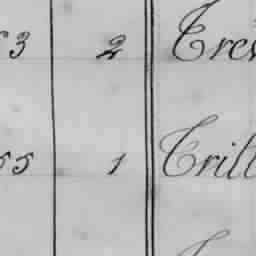 53 2 Trev
55 1 Trill